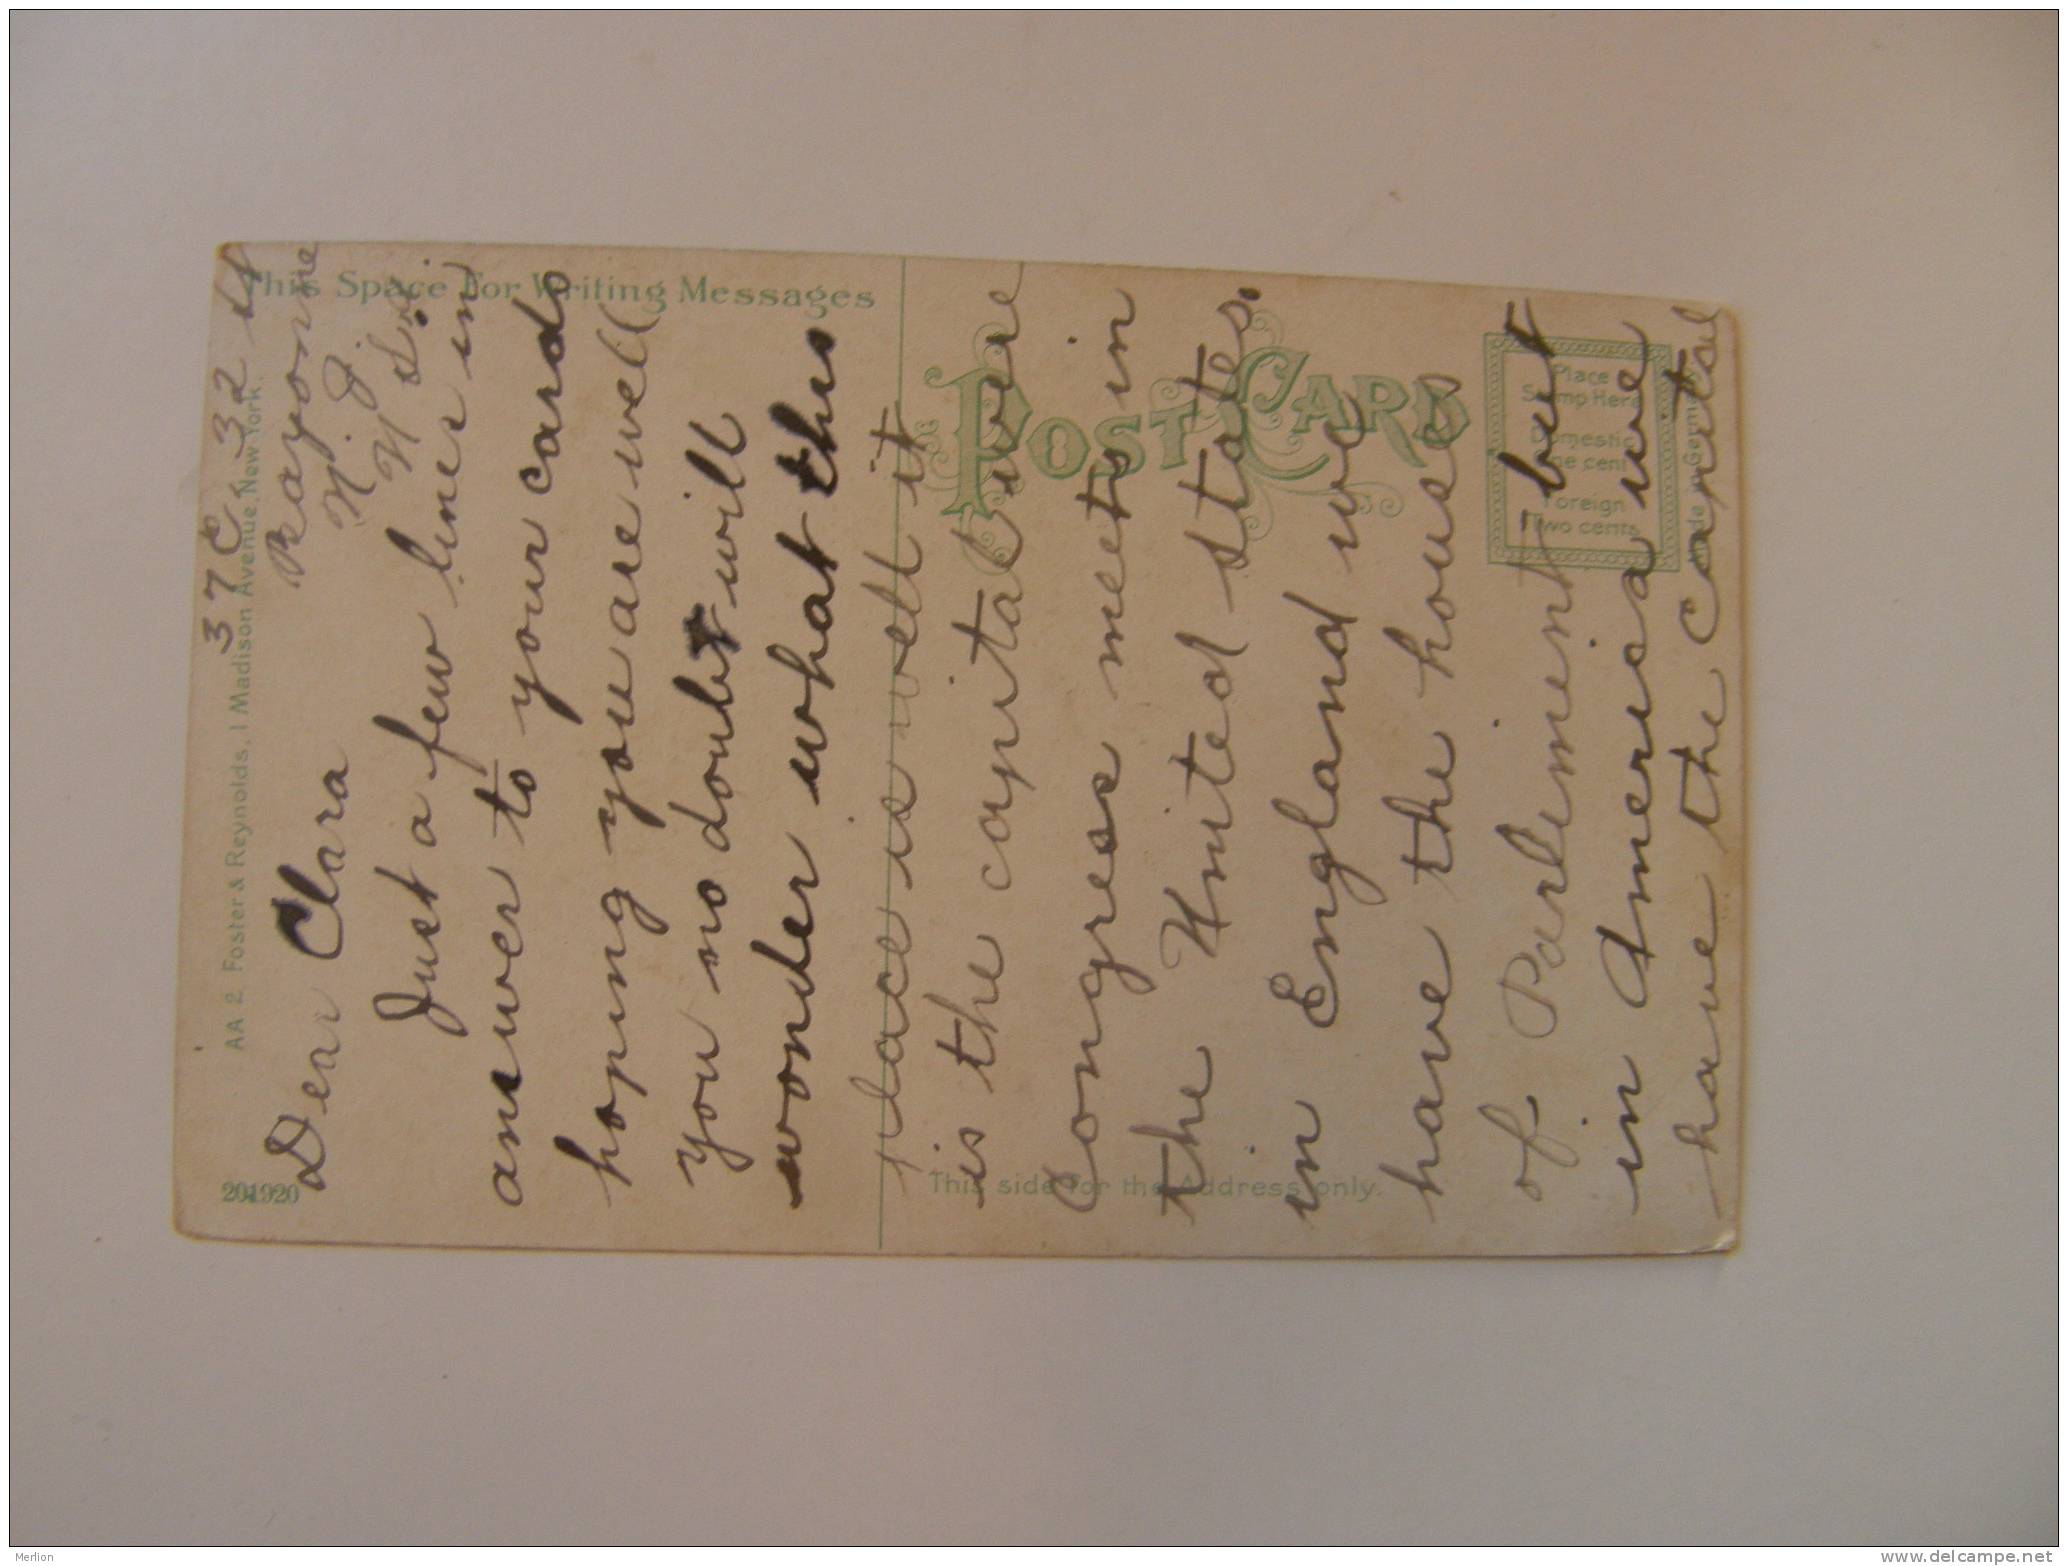 37 E 32 st
Bayonne
N. J.
U. S. A.
Dear Clara
Just a few lines in
answer to your cards
hoping you are well
you no doubt will
wonder what this
place is well it
is the capital were
Congress meets in
the United states.
in England we
have the houses
of Parliment but
in America we
have the Capital
201920
AA 2 Foster & Reynolds, 1 Madison Avenue, New York.
This Space For Writing Messages
POST CARD
This side for the Address only.
Place
Stamp Here
Domestic
One cent
Foreign
Two cents
Made in Germany
Merlion
www.delcampe.net